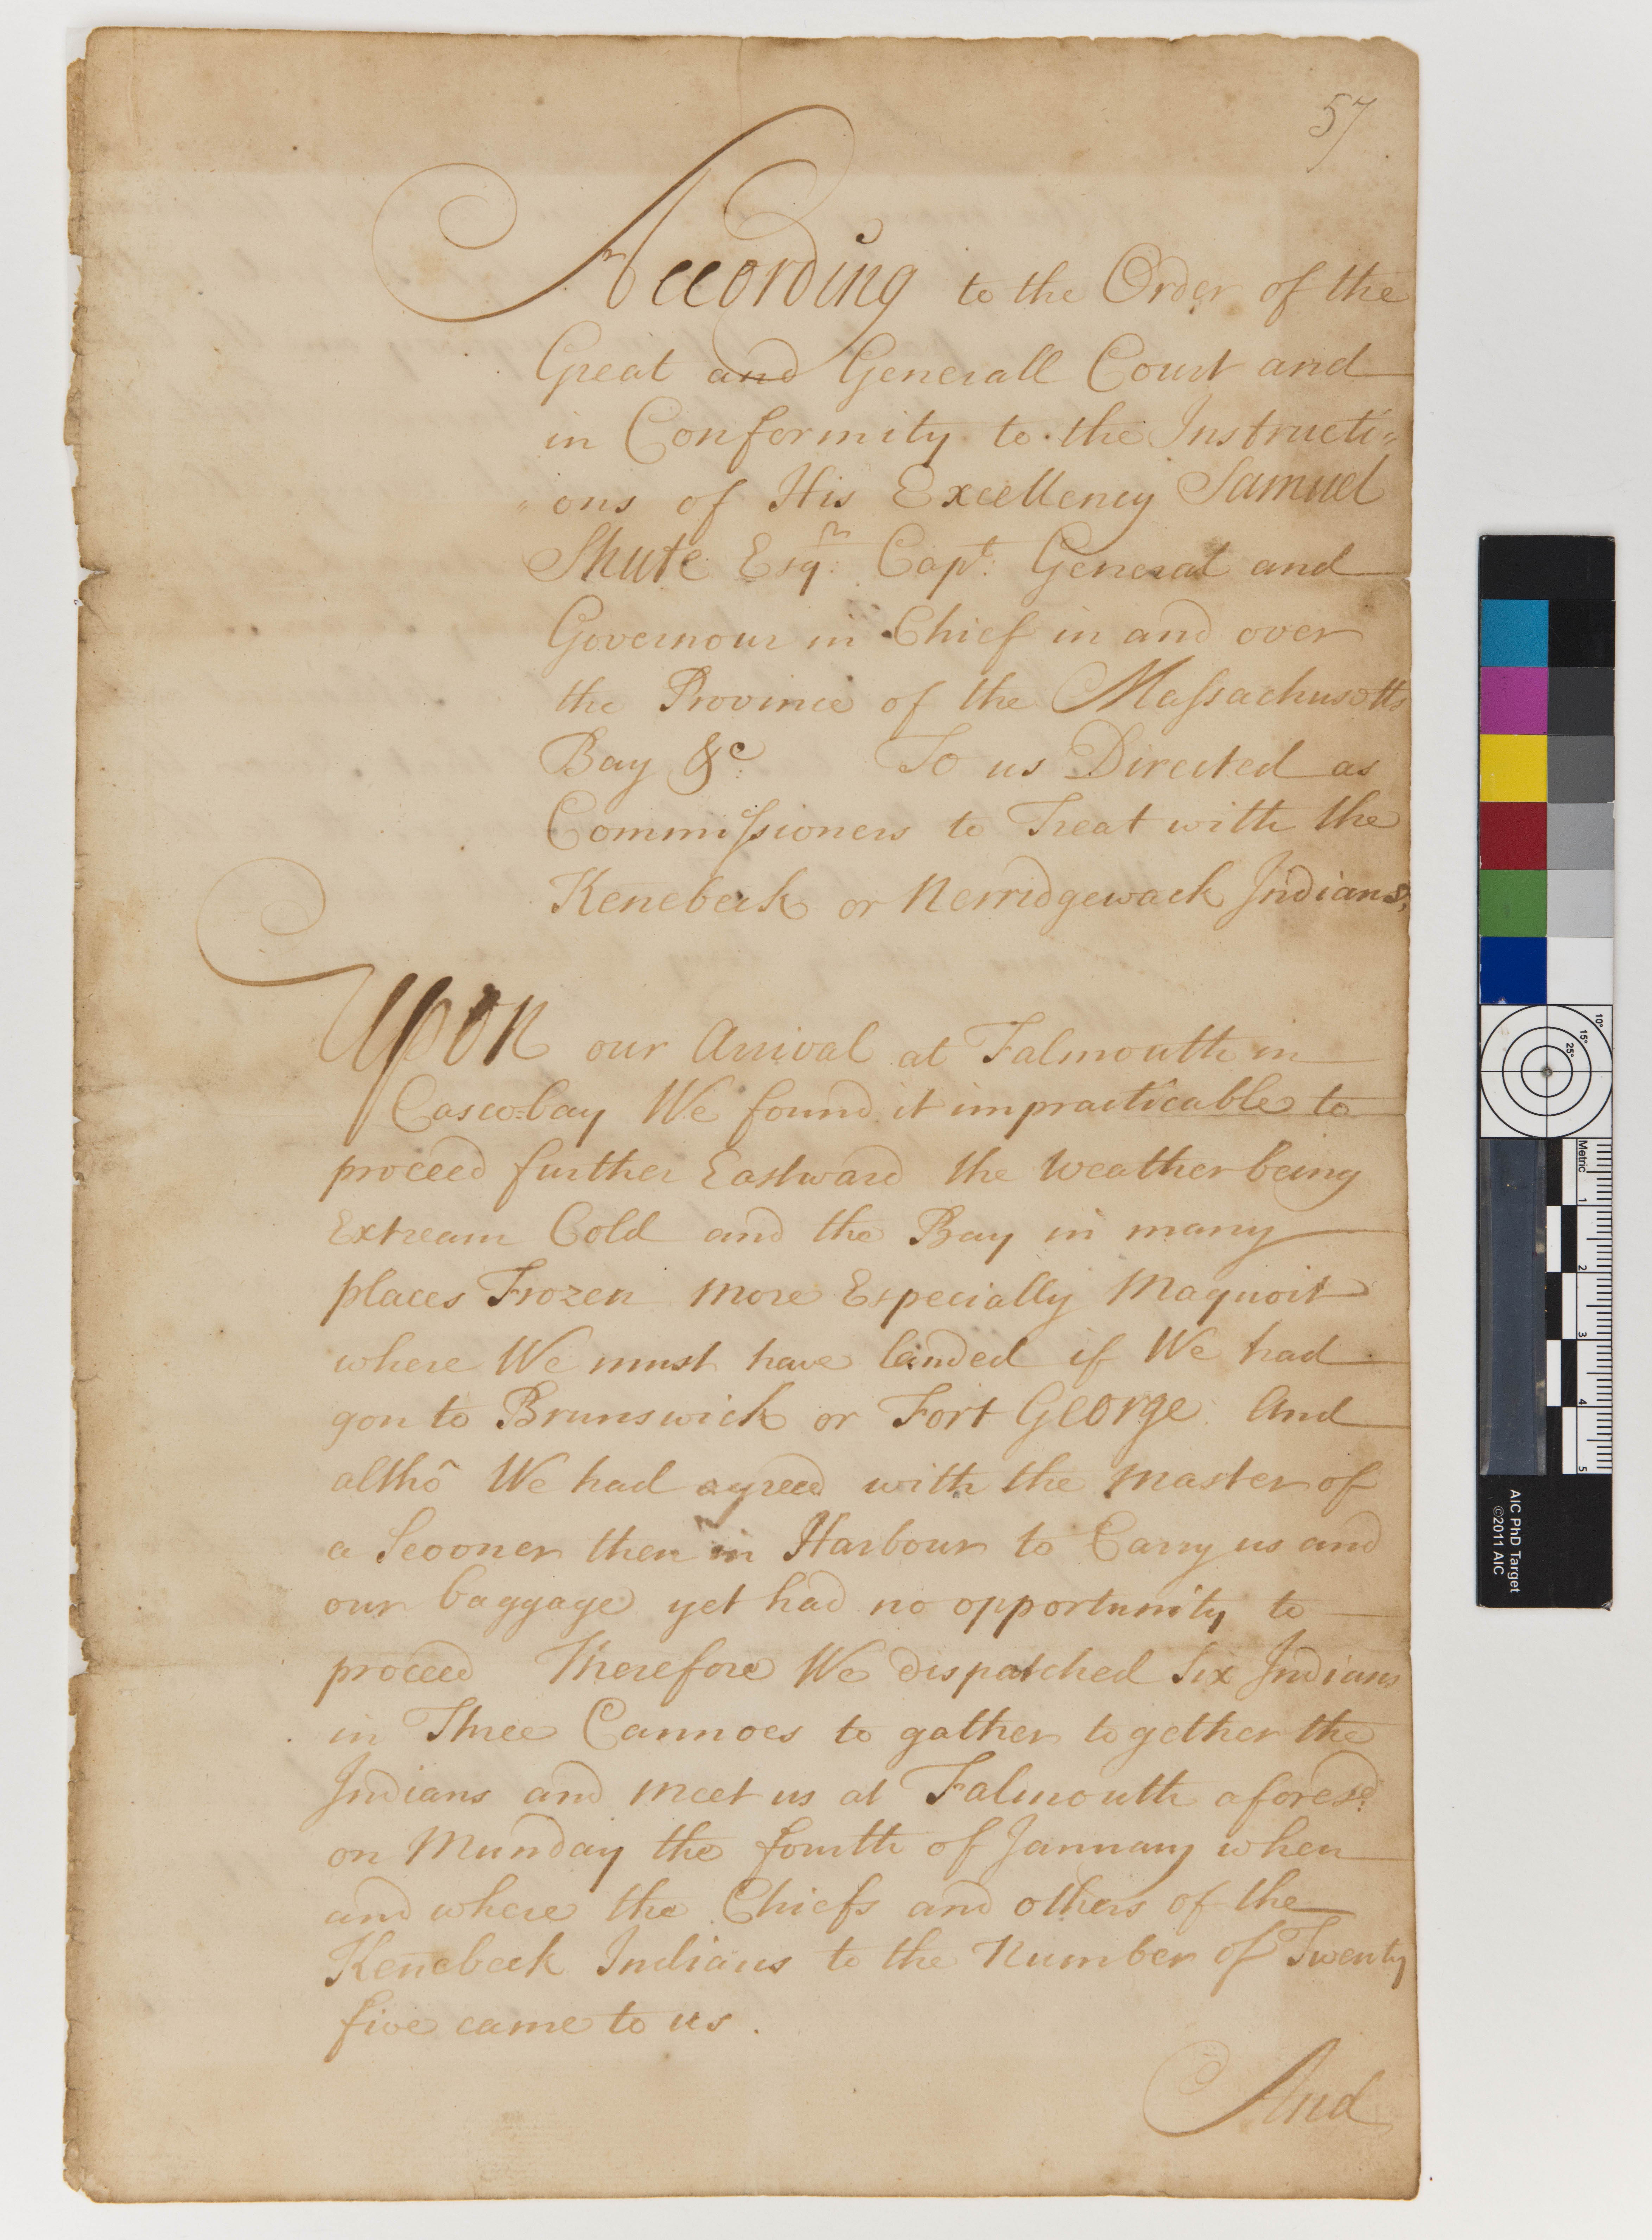 57
According to the Order of the
Great and Generall Court and
in Conformity to the Instructi=
=ons of His Excellency Samuel
Shute Esqr: Capt: General and
Governour in Chief in and over
the Province of the Massachusetts
Bay &c: To us Directed as
Commissioners to Treat with the
Kenebeck or Nerridgewack Indians,
Upon our Arrival at Falmouth in
Casco=bay We found it impracticable to
proceed further Eastward the Weather being
Extream Cold and the Bay in many
places Frozen more Especially Maquoit
where We must have landed if We had
gon to Brunswick or Fort George And
altho We had agreed with the Master of
a Scooner then in Harbour to Carry us and
our baggage yet had no opportunity to
proceed Therefore We dispatched Six Indians
in Three Cannoes to gather together the
Indians and meet us at Falmouth aforesd:
on Munday the fourth of January when
and where the Chiefs and others of the
Kenebeck Indians to the Number of Twenty
five came to us.
And
AIC PhD Target
©2011 AIC
Metric
1
2
3
4
5
10°
15°
25°